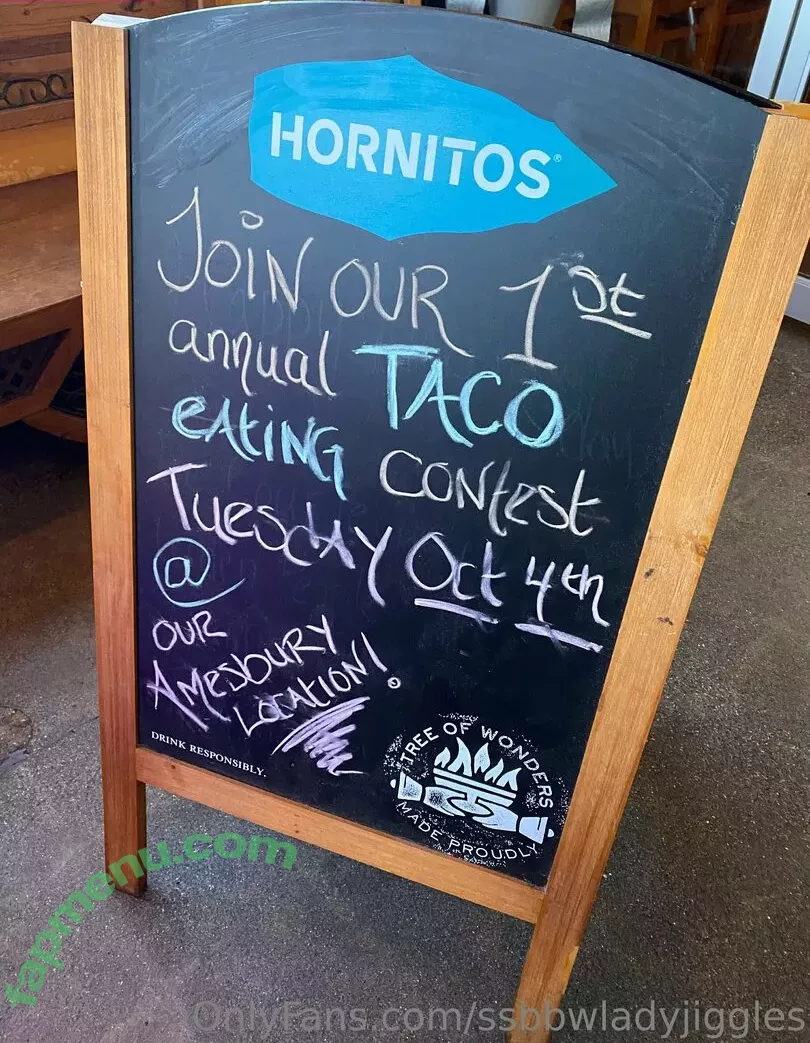 HORNITOS®
JOIN OUR 1st
annual TACO
eATiNG CONTEST
TUESDAY Oct 4th
@
OUR
AMESBURY
LOCATION!
DRINK RESPONSIBLY.
TREE OF WONDERS
MADE PROUDLY
fapmenu.com
OnlyFans.com/ssbbwladyjiggles